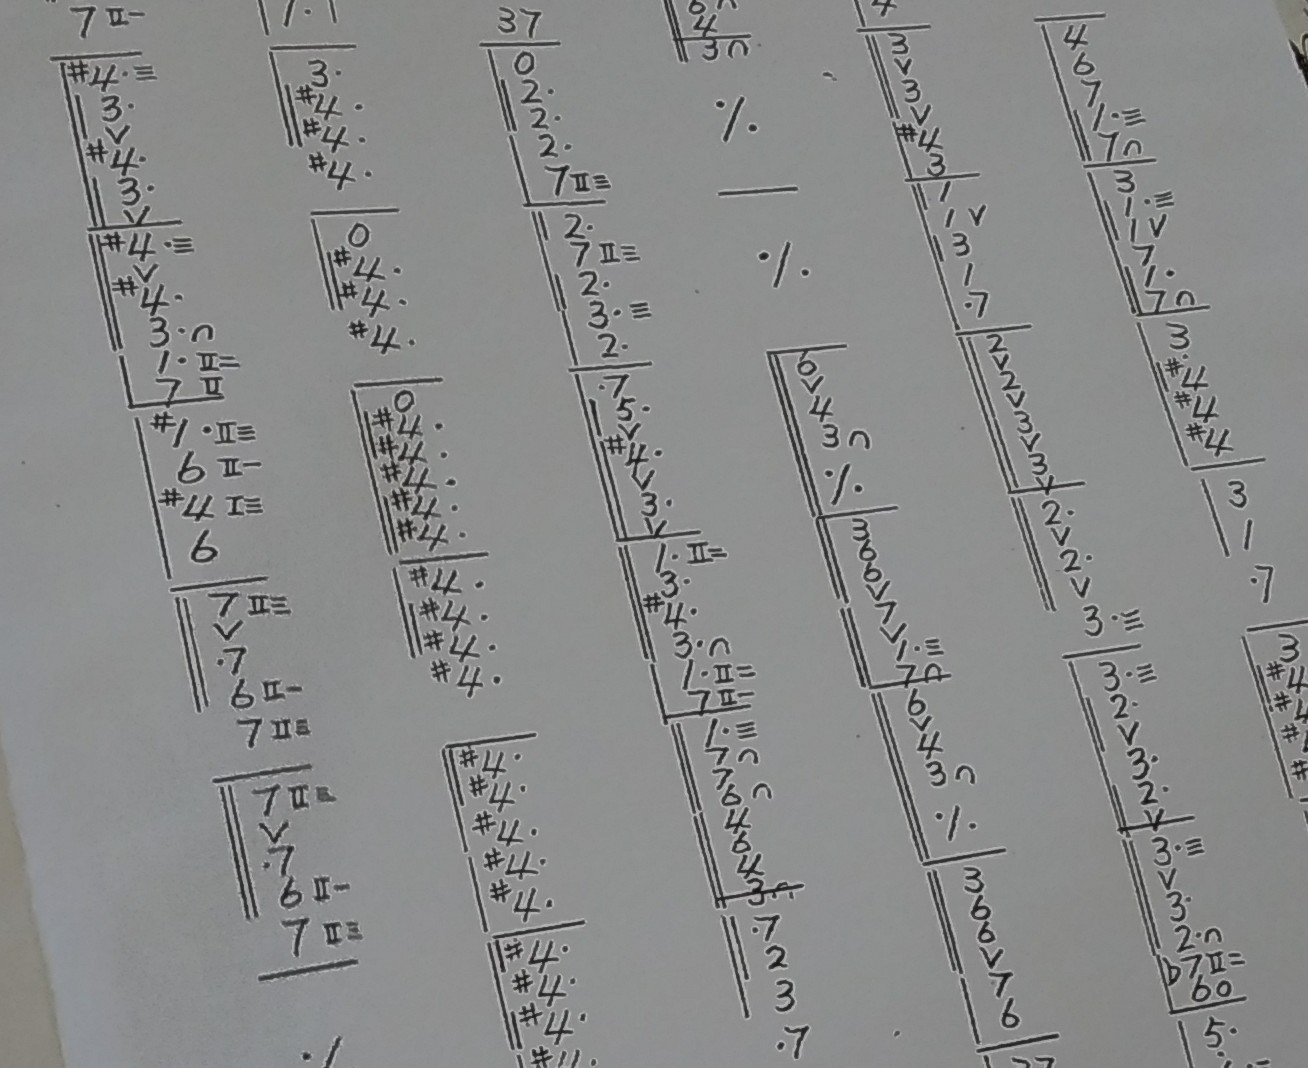 4 6 7 1·≡ 7∩ 3 1·≡ 1 V 7 1· 7∩ 3 #4 #4 #4 3 1 ·7 3
4 3 V 3 V #4 3 1 1 V 3 1 ·7 2 V 2 V 3 V 3 V 2· V 2· V 3·≡ 3·≡ 2· V 3· 2· V 3·≡ V 3· 2·∩ ♭7Ⅱ= 60 5·
4 3∩ ·/. ·/. 6 V 4 3∩ ·/. 3 6 6 V 7 V 1·≡ 7∩ 6 V 4 3∩ ·/. 3 6 6 V 7 6
37 0 2· 2· 2· 7Ⅱ≡ 2· 7Ⅱ≡ 2· 3·≡ 2· ·7 5· V #4· V 3· V 1·Ⅱ= 3· #4· 3·∩ 1·Ⅱ= 7Ⅱ- 1·≡ 7∩ 7 6∩ 4 6 4 3∩ ·7 2 3 ·7
1· 3· #4· #4· #4· 0 #4· #4· #4· 0 #4· #4· #4· #4· #4· #4· #4· #4· #4· #4· #4· #4· #4· #4· #4· #4· #4· #4·
7Ⅱ- #4·≡ 3· V #4· 3· V #4·≡ V #4· 3·∩ 1·Ⅱ= 7Ⅱ #1·Ⅱ≡ 6Ⅱ- #4Ⅰ≡ 6 7Ⅱ≡ V ·7 6Ⅱ- 7Ⅱ≡ 7Ⅱ≡ V ·7 6Ⅱ- 7Ⅱ≡ ·/